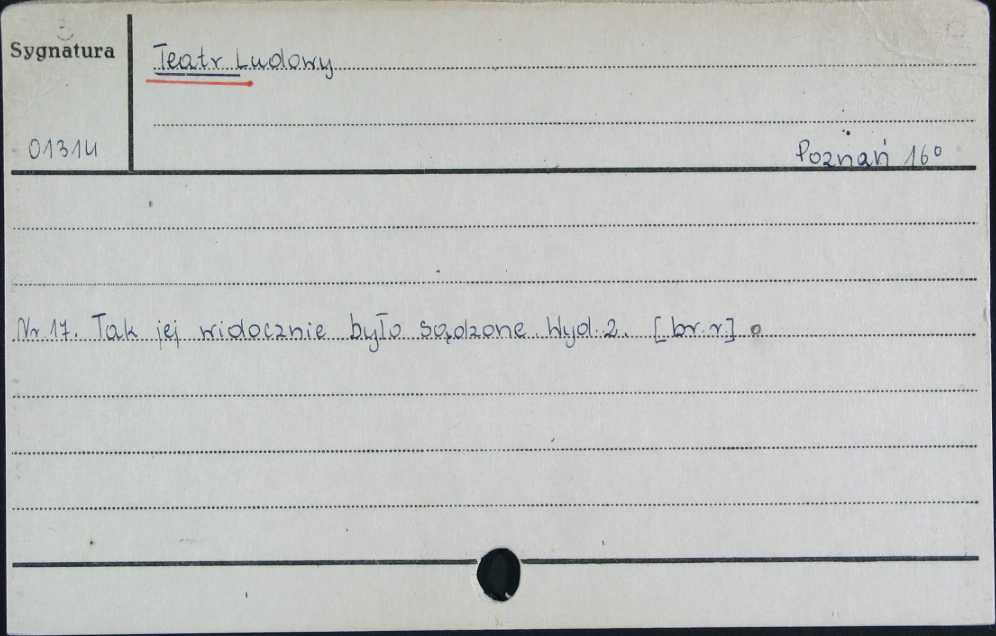 Sygnatura
Teatr Ludowy
01314
Poznań 16°
Nr 17. Tak jej widocznie było sądzone. Wyd. 2. [br. r.]